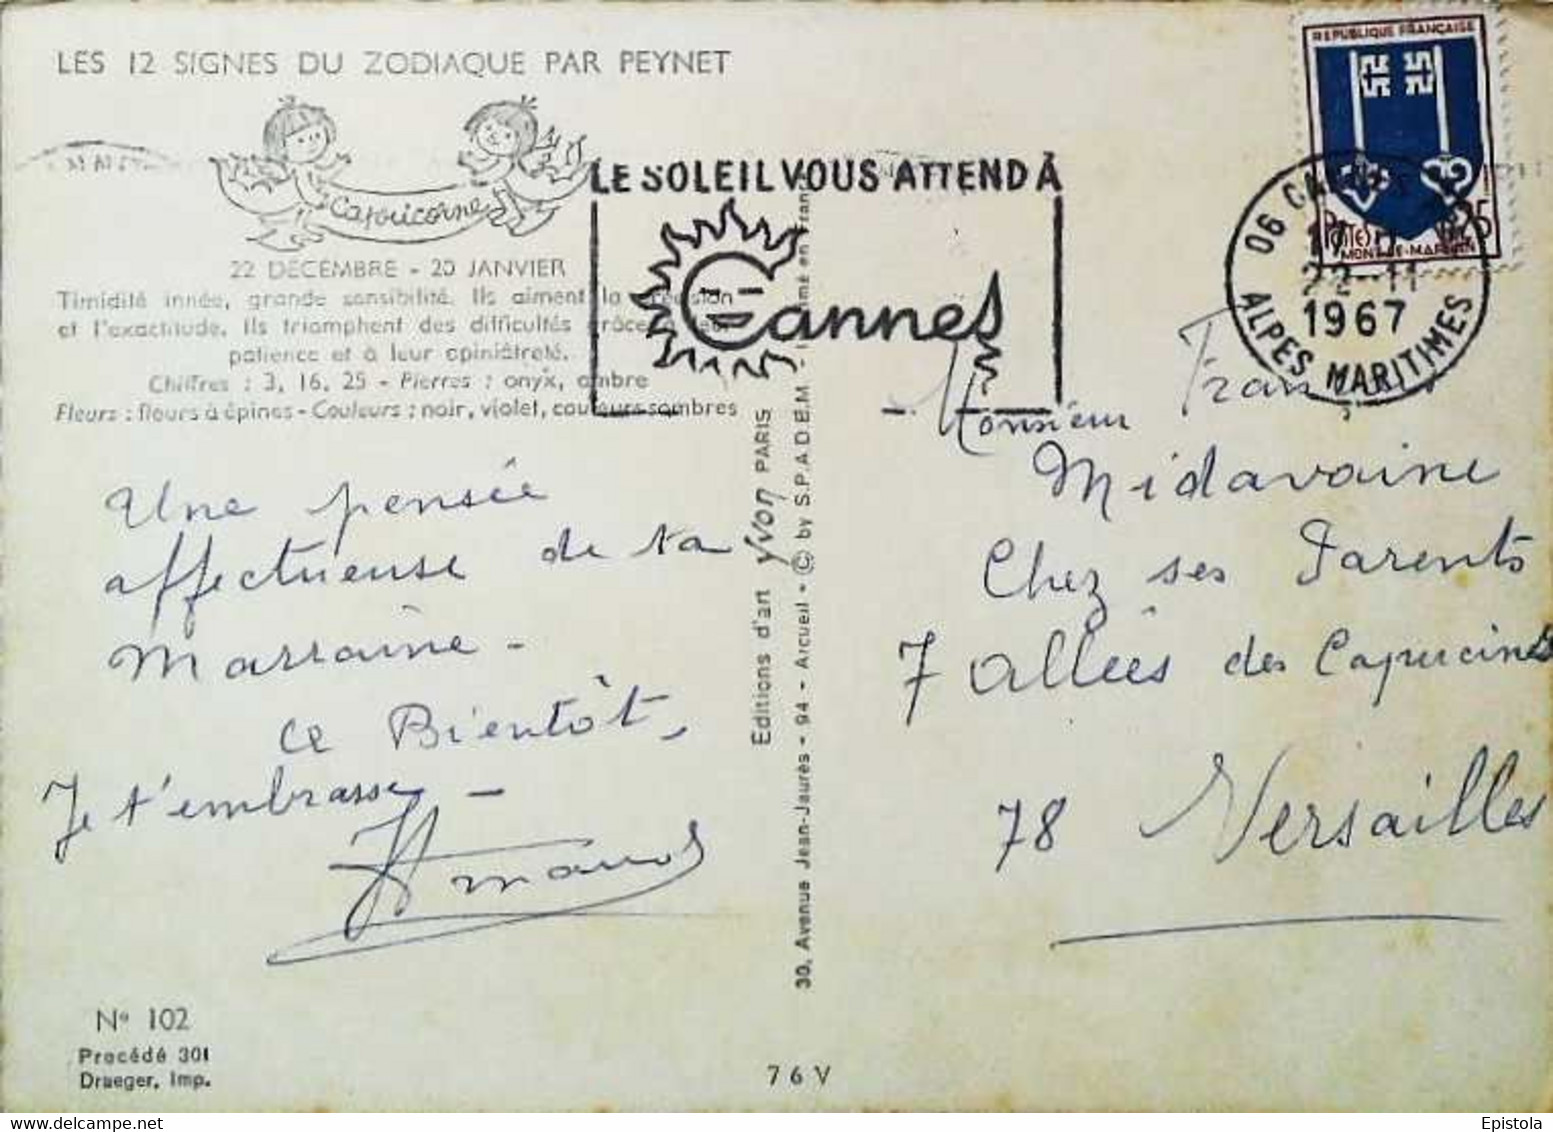 LES 12 SIGNES DU ZODIAQUE PAR PEYNET
Capricorne
22 DÉCEMBRE - 20 JANVIER
Timidité innée, grande sensibilité. Ils aiment la précision
et l'exactitude. Ils triomphent des difficultés grâce à leur
patience et à leur opiniâtreté.
Chiffres : 3, 16, 25 - Pierres : onyx, ambre
Fleurs : fleurs à épines - Couleurs : noir, violet, couleurs sombres
LE SOLEIL VOUS ATTEND À
Cannes
REPUBLIQUE FRANÇAISE
POSTES
MONT-DE-MARSAN
06 CANNES
17 H
22-11
1967
ALPES MARITIMES
Une pensée
affectueuse de ta
Marraine -
a Bientôt,
Je t'embrasse -
Monsieur
Midavaine
Chez ses Parents
7 Allées des Capucines
78 Versailles
Editions d'art yvon PARIS
30, Avenue Jean-Jaurès - 94 - Arcueil • © by S.P.A.D.E.M. - Imprimé en France
N° 102
Procédé 301
Draeger, Imp.
76V
Epistola